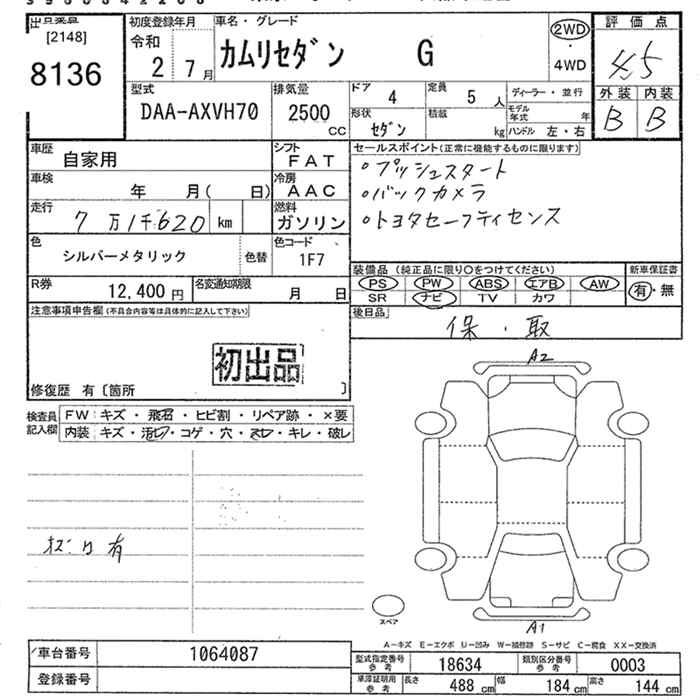 [2148]
8136
初度登録年月
令和
2 7月
車名・グレード
カムリセダン G
2WD
・
4WD
評価点
4.5
外装 内装
B B
型式
DAA-AXVH70
排気量
2500
CC
ドア 4
定員 5人
形状 セダン
積載 kg
ディーラー・並行
モデル年式 年
ハンドル 左・右
車歴 自家用
シフト FAT
車検 年 月( 日)
冷房 AAC
走行 7万1千620 km
燃料 ガソリン
色 シルバーメタリック
色替
色コード 1F7
R券 12,400円
名変通知期限 月 日
セールスポイント(正常に機能するものに限ります)
○プッシュスタート
○バックカメラ
○トヨタセーフティセンス
装備品(純正品に限り○をつけてください)
新車保証書
PS PW ABS エアB AW
SR ナビ TV カワ
有・無
後日品
保・取
注意事項申告欄(不具合内容等は具体的に記入して下さい)
初出品
修復歴 有〔箇所 〕
検査員記入欄
FW: キズ・飛石・ヒビ割・リペア跡・×要
内装: キズ・汚れ・コゲ・穴・スレ・キレ・破レ
A2
スペア
A1
A-キズ E-エクボ U-凹み W-補修跡 S-サビ C-腐食 XX-交換済
車台番号 1064087
登録番号
型式指定番号参考 18634
類別区分番号参考 0003
車庫証明用参考 長さ 488cm 幅 184cm 高さ 144cm